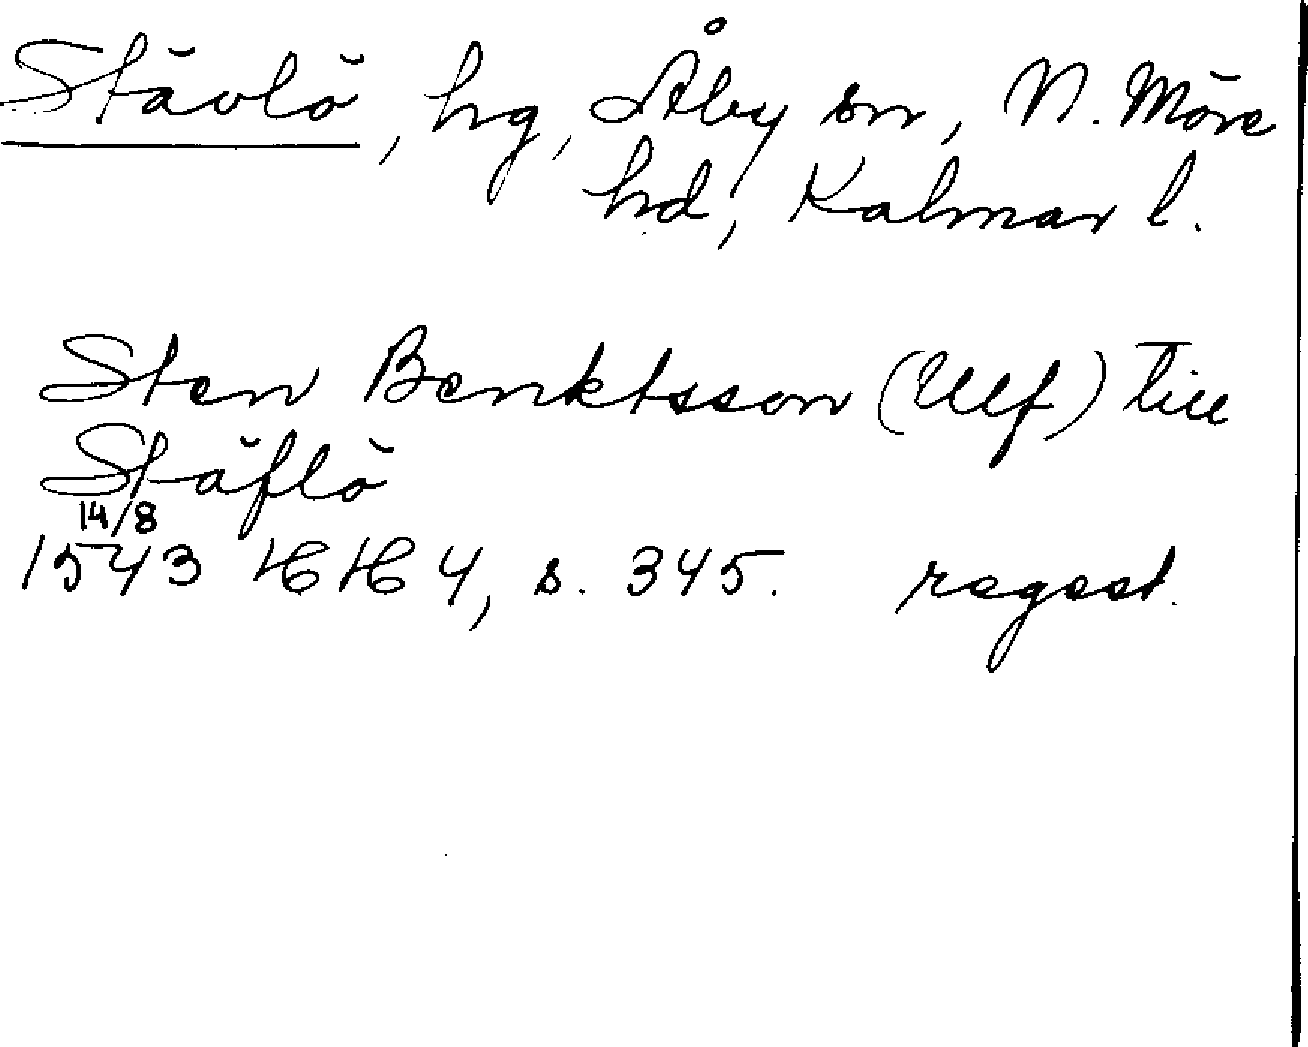 Stävlö, hg, Åby sn, N. Möre
hd, Kalmar l.
Sten Benktsson (Ulf) till
Stäflö
14/8
1543 HH 4, s. 345. regest.